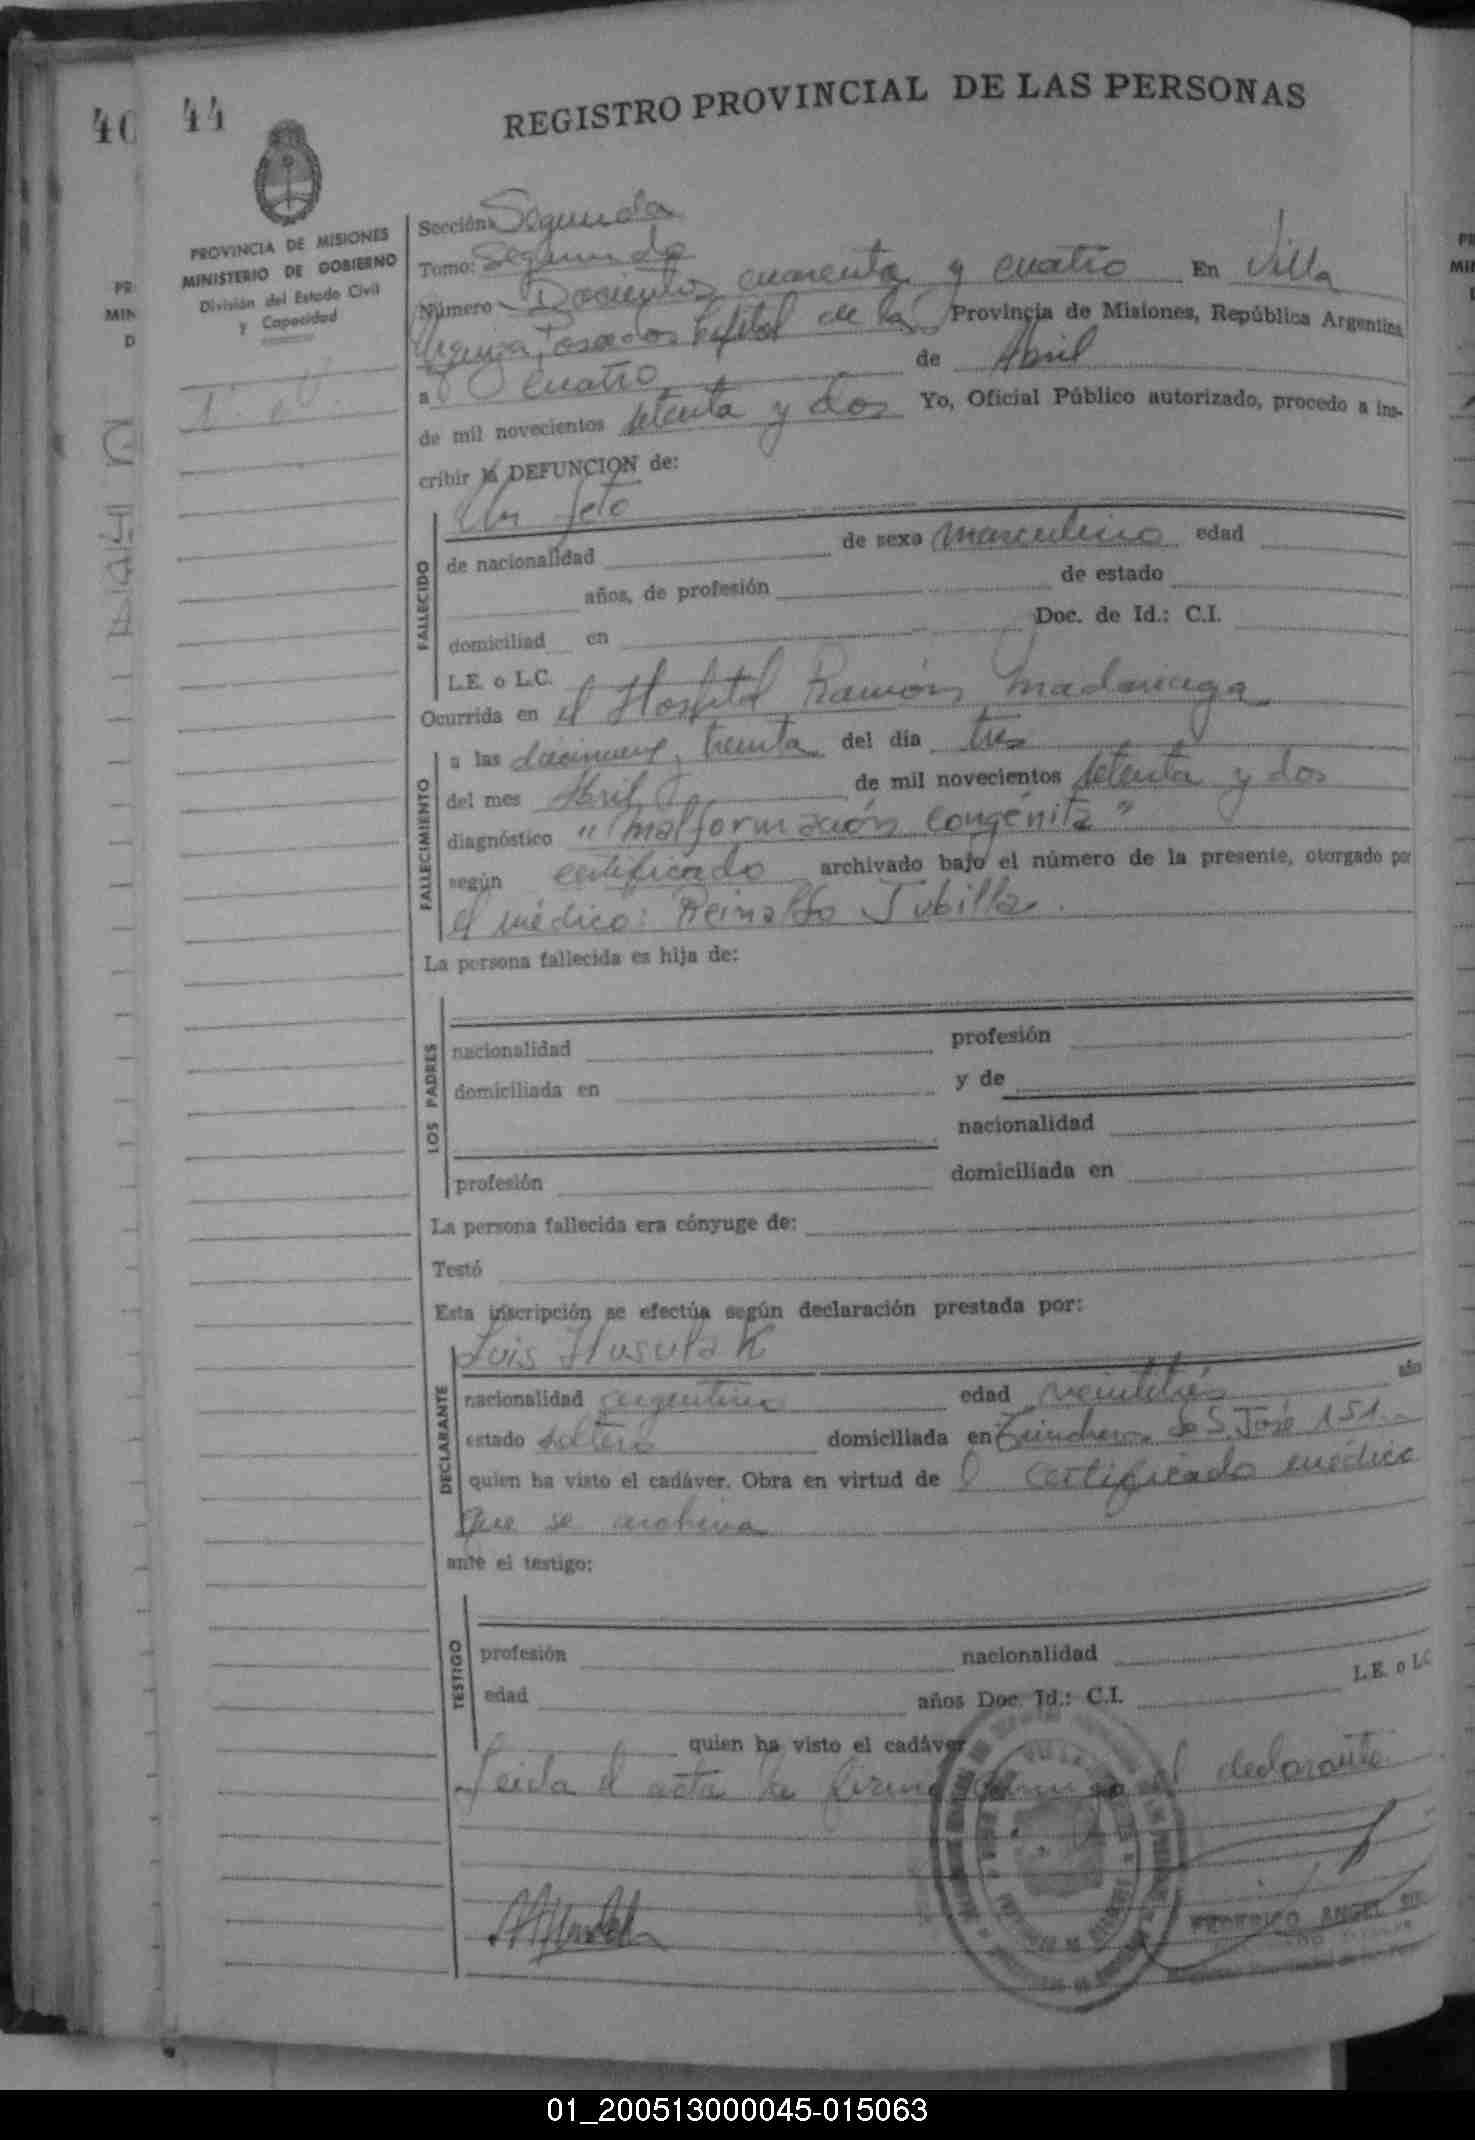 40
44
REGISTRO PROVINCIAL DE LAS PERSONAS
PROVINCIA DE MISIONES
MINISTERIO DE GOBIERNO
División del Estado Civil
y Capacidad
Sección: Segunda
Tomo: Segundo
Número Docientos cuarenta y cuatro En Villa
Urquiza, Posadas Kapital de la Provincia de Misiones, República Argentina
a cuatro de Abril
de mil novecientos setenta y dos Yo, Oficial Público autorizado, procedo a ins-
cribir la DEFUNCION de:
Un feto
FALLECIDO
de nacionalidad de sexo masculino edad
años, de profesión de estado
domiciliad en Doc. de Id.: C.I.
L.E. o L.C.
Ocurrida en el Hospital Ramón Madariaga
FALLECIMIENTO
a las diecinueve, treinta del día tres
del mes Abril de mil novecientos setenta y dos
diagnóstico "malformación congénita"
según certificado archivado bajo el número de la presente, otorgado por
el médico: Reinaldo Jubilla.
La persona fallecida es hija de:
LOS PADRES
nacionalidad profesión
domiciliada en y de
nacionalidad
profesión domiciliada en
La persona fallecida era cónyuge de:
Testó
Esta inscripción se efectúa según declaración prestada por:
DECLARANTE
Luis Husulak
nacionalidad argentino edad veintitrés
estado soltero domiciliada en Trincheras de S. José 151
quien ha visto el cadáver. Obra en virtud de l certificado médico
que se archiva
ante el testigo:
TESTIGO
profesión nacionalidad
edad años Doc. Id.: C.I. L.E. o LC
quien ha visto el cadáver
Leida el acta la firma conmigo el declarante
FEDERICO ANGEL
01_200513000045-015063